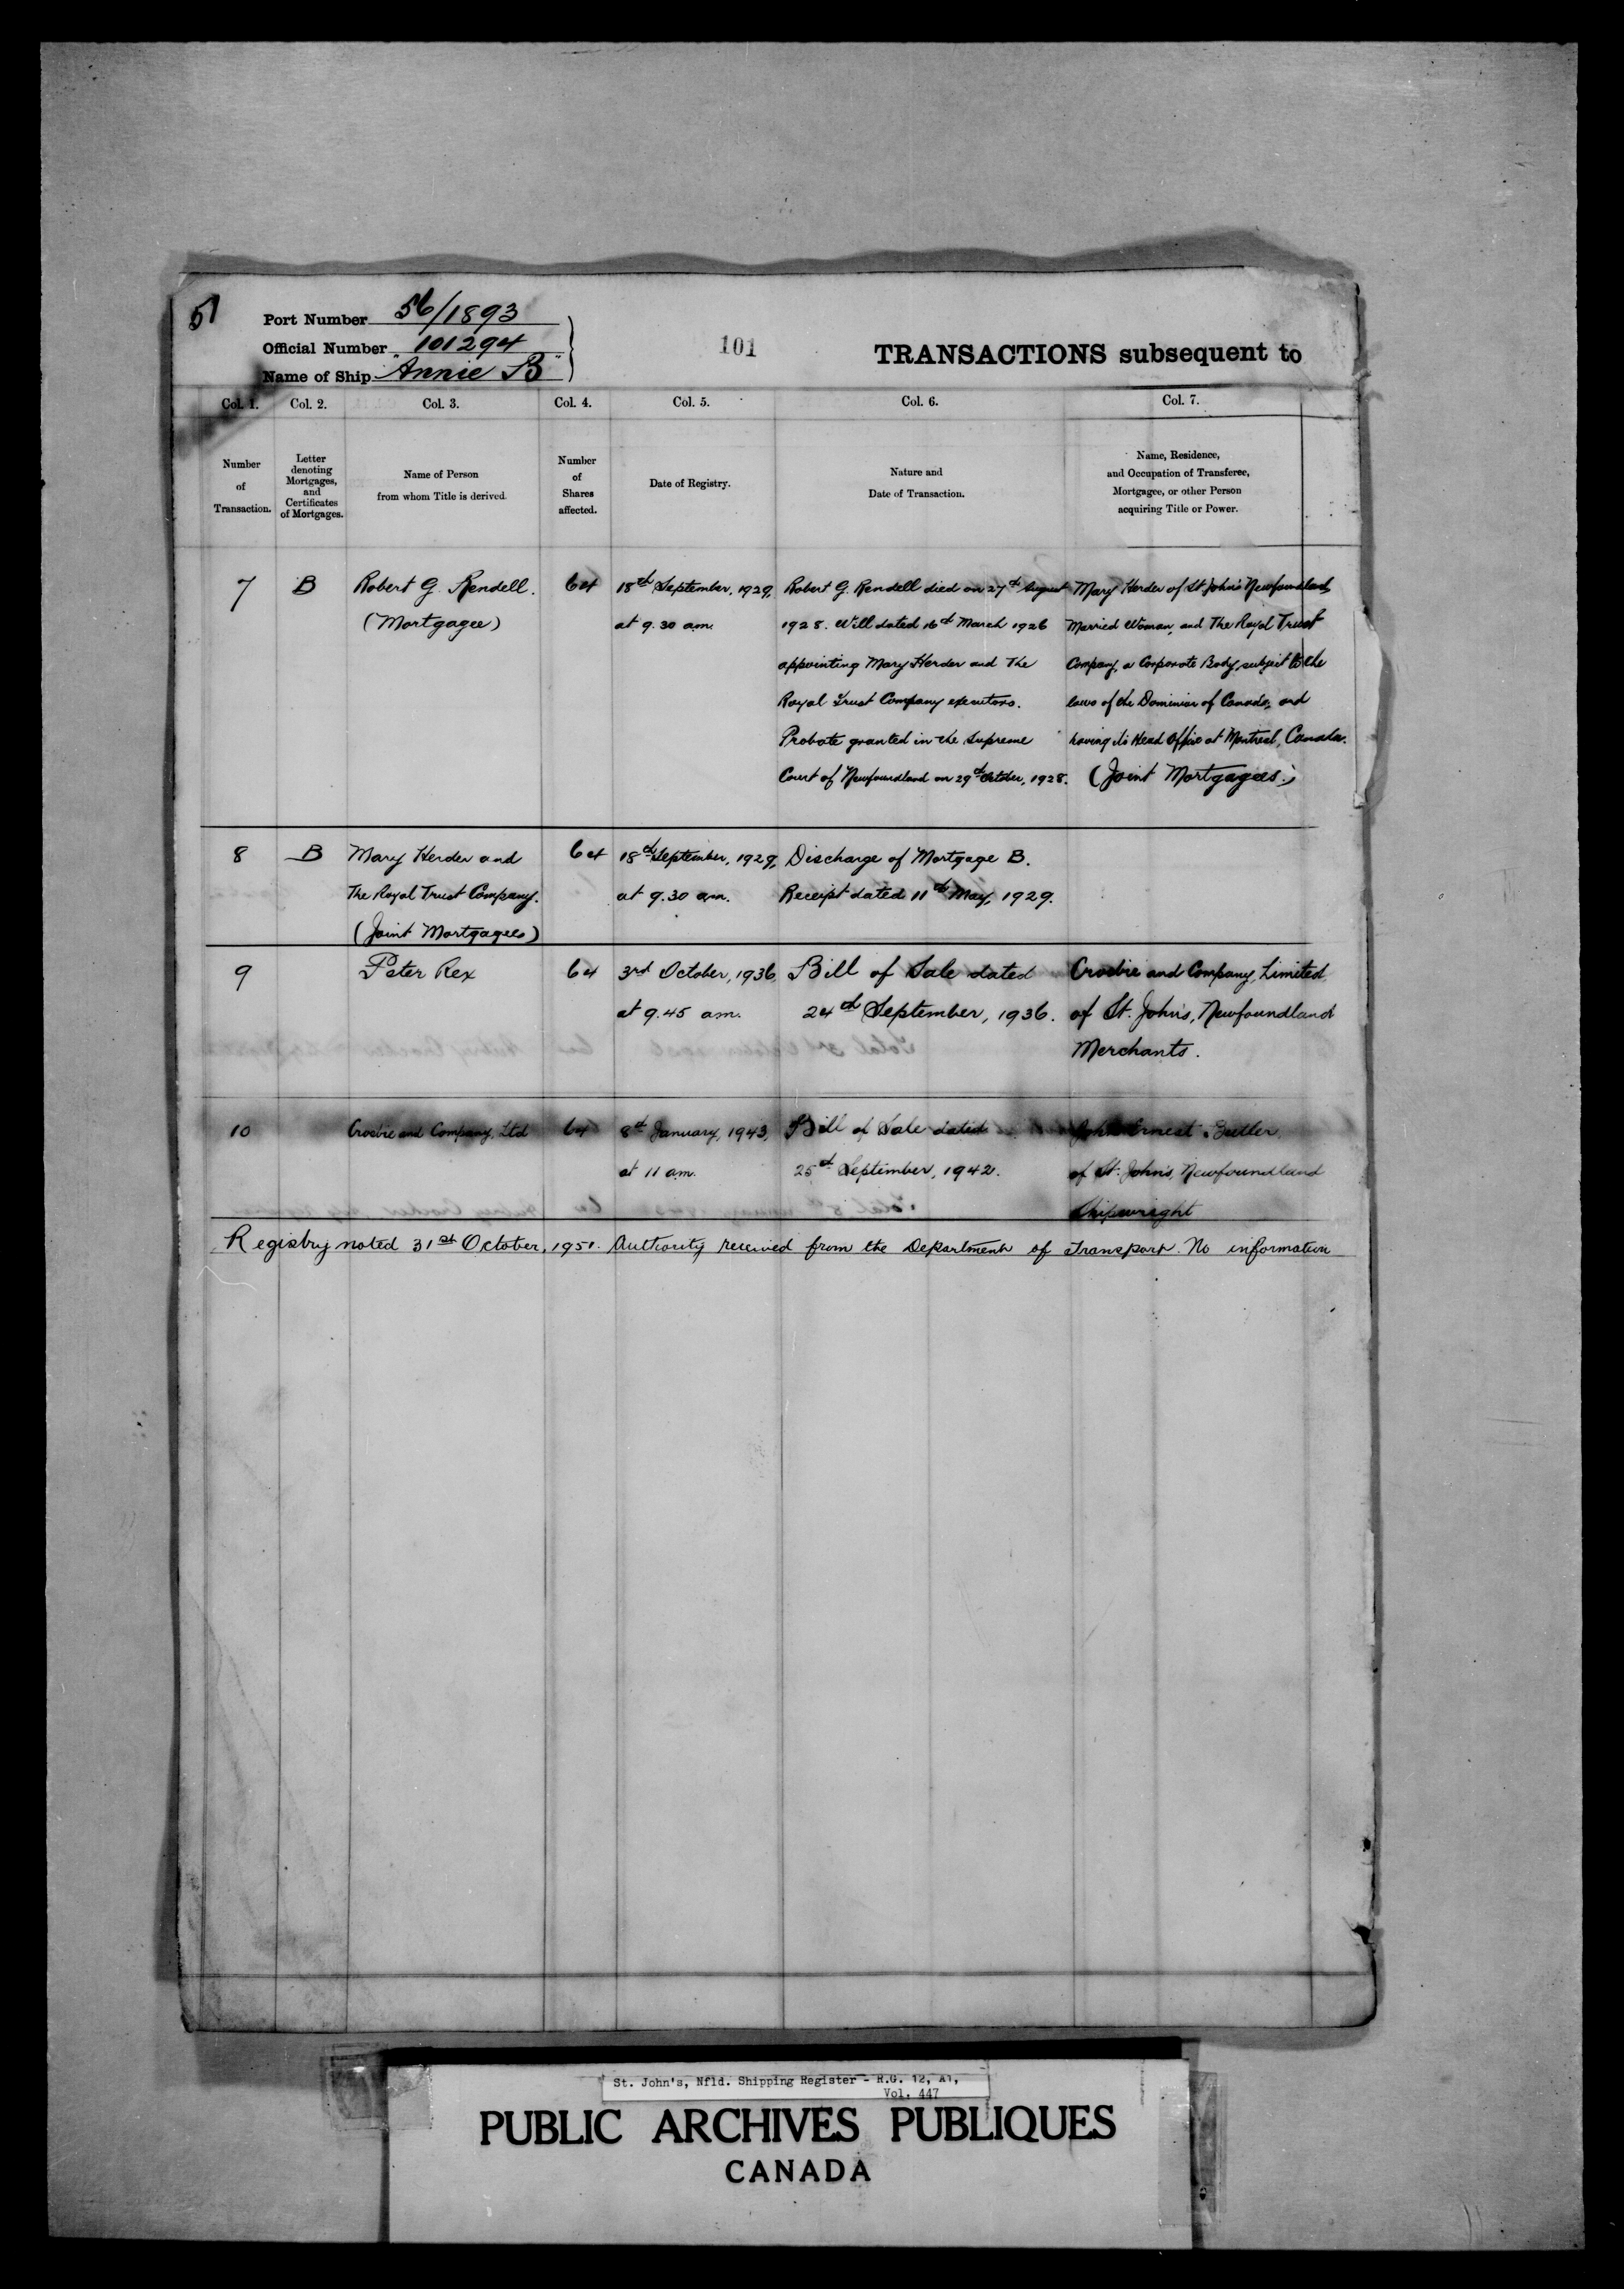 51
Port Number 56/1893
Official Number 101294
Name of Ship "Annie B"
101
TRANSACTIONS subsequent to
Col. 1. Col. 2. Col. 3. Col. 4. Col. 5. Col. 6. Col. 7.
Number of Transaction.
Letter denoting Mortgages, and Certificates of Mortgages.
Name of Person from whom Title is derived.
Number of Shares affected.
Date of Registry.
Nature and Date of Transaction.
Name, Residence, and Occupation of Transferee, Mortgagee, or other Person acquiring Title or Power.
7 B Robert G. Rendell. 64 18th September, 1929, Robert G. Rendell died on 27th August Mary Herder of St John's Newfoundland,
(Mortgagee) at 9.30 a.m. 1928. Will dated 16th March 1926 Married Woman, and The Royal Trust
appointing Mary Herder and The Company, a Corporate Body, subject to the
Royal Trust Company executors. laws of the Dominion of Canada, and
Probate granted in the Supreme having its Head Office at Montreal, Canada.
Court of Newfoundland on 29th October, 1928. (Joint Mortgagees.)
8 B Mary Herder and 64 18th September, 1929, Discharge of Mortgage B.
The Royal Trust Company. at 9.30 a.m. Receipt dated 11th May, 1929.
(Joint Mortgagees)
9 Peter Rex 64 3rd October, 1936, Bill of Sale dated Crosbie and Company, Limited
at 9.45 a.m. 24th September, 1936. of St. John's, Newfoundland
Merchants.
10 Crosbie and Company, Ltd 64 8th January, 1943, Bill of Sale dated John Ernest
at 11 a.m. 25th September, 1942. of St. John's, Newfoundland
Shipwright
Registry noted 31st October, 1951. Authority received from the Department of Transport. No information
St. John's, Nfld. Shipping Register - R.G. 12, A1,
Vol. 447
PUBLIC ARCHIVES PUBLIQUES
CANADA